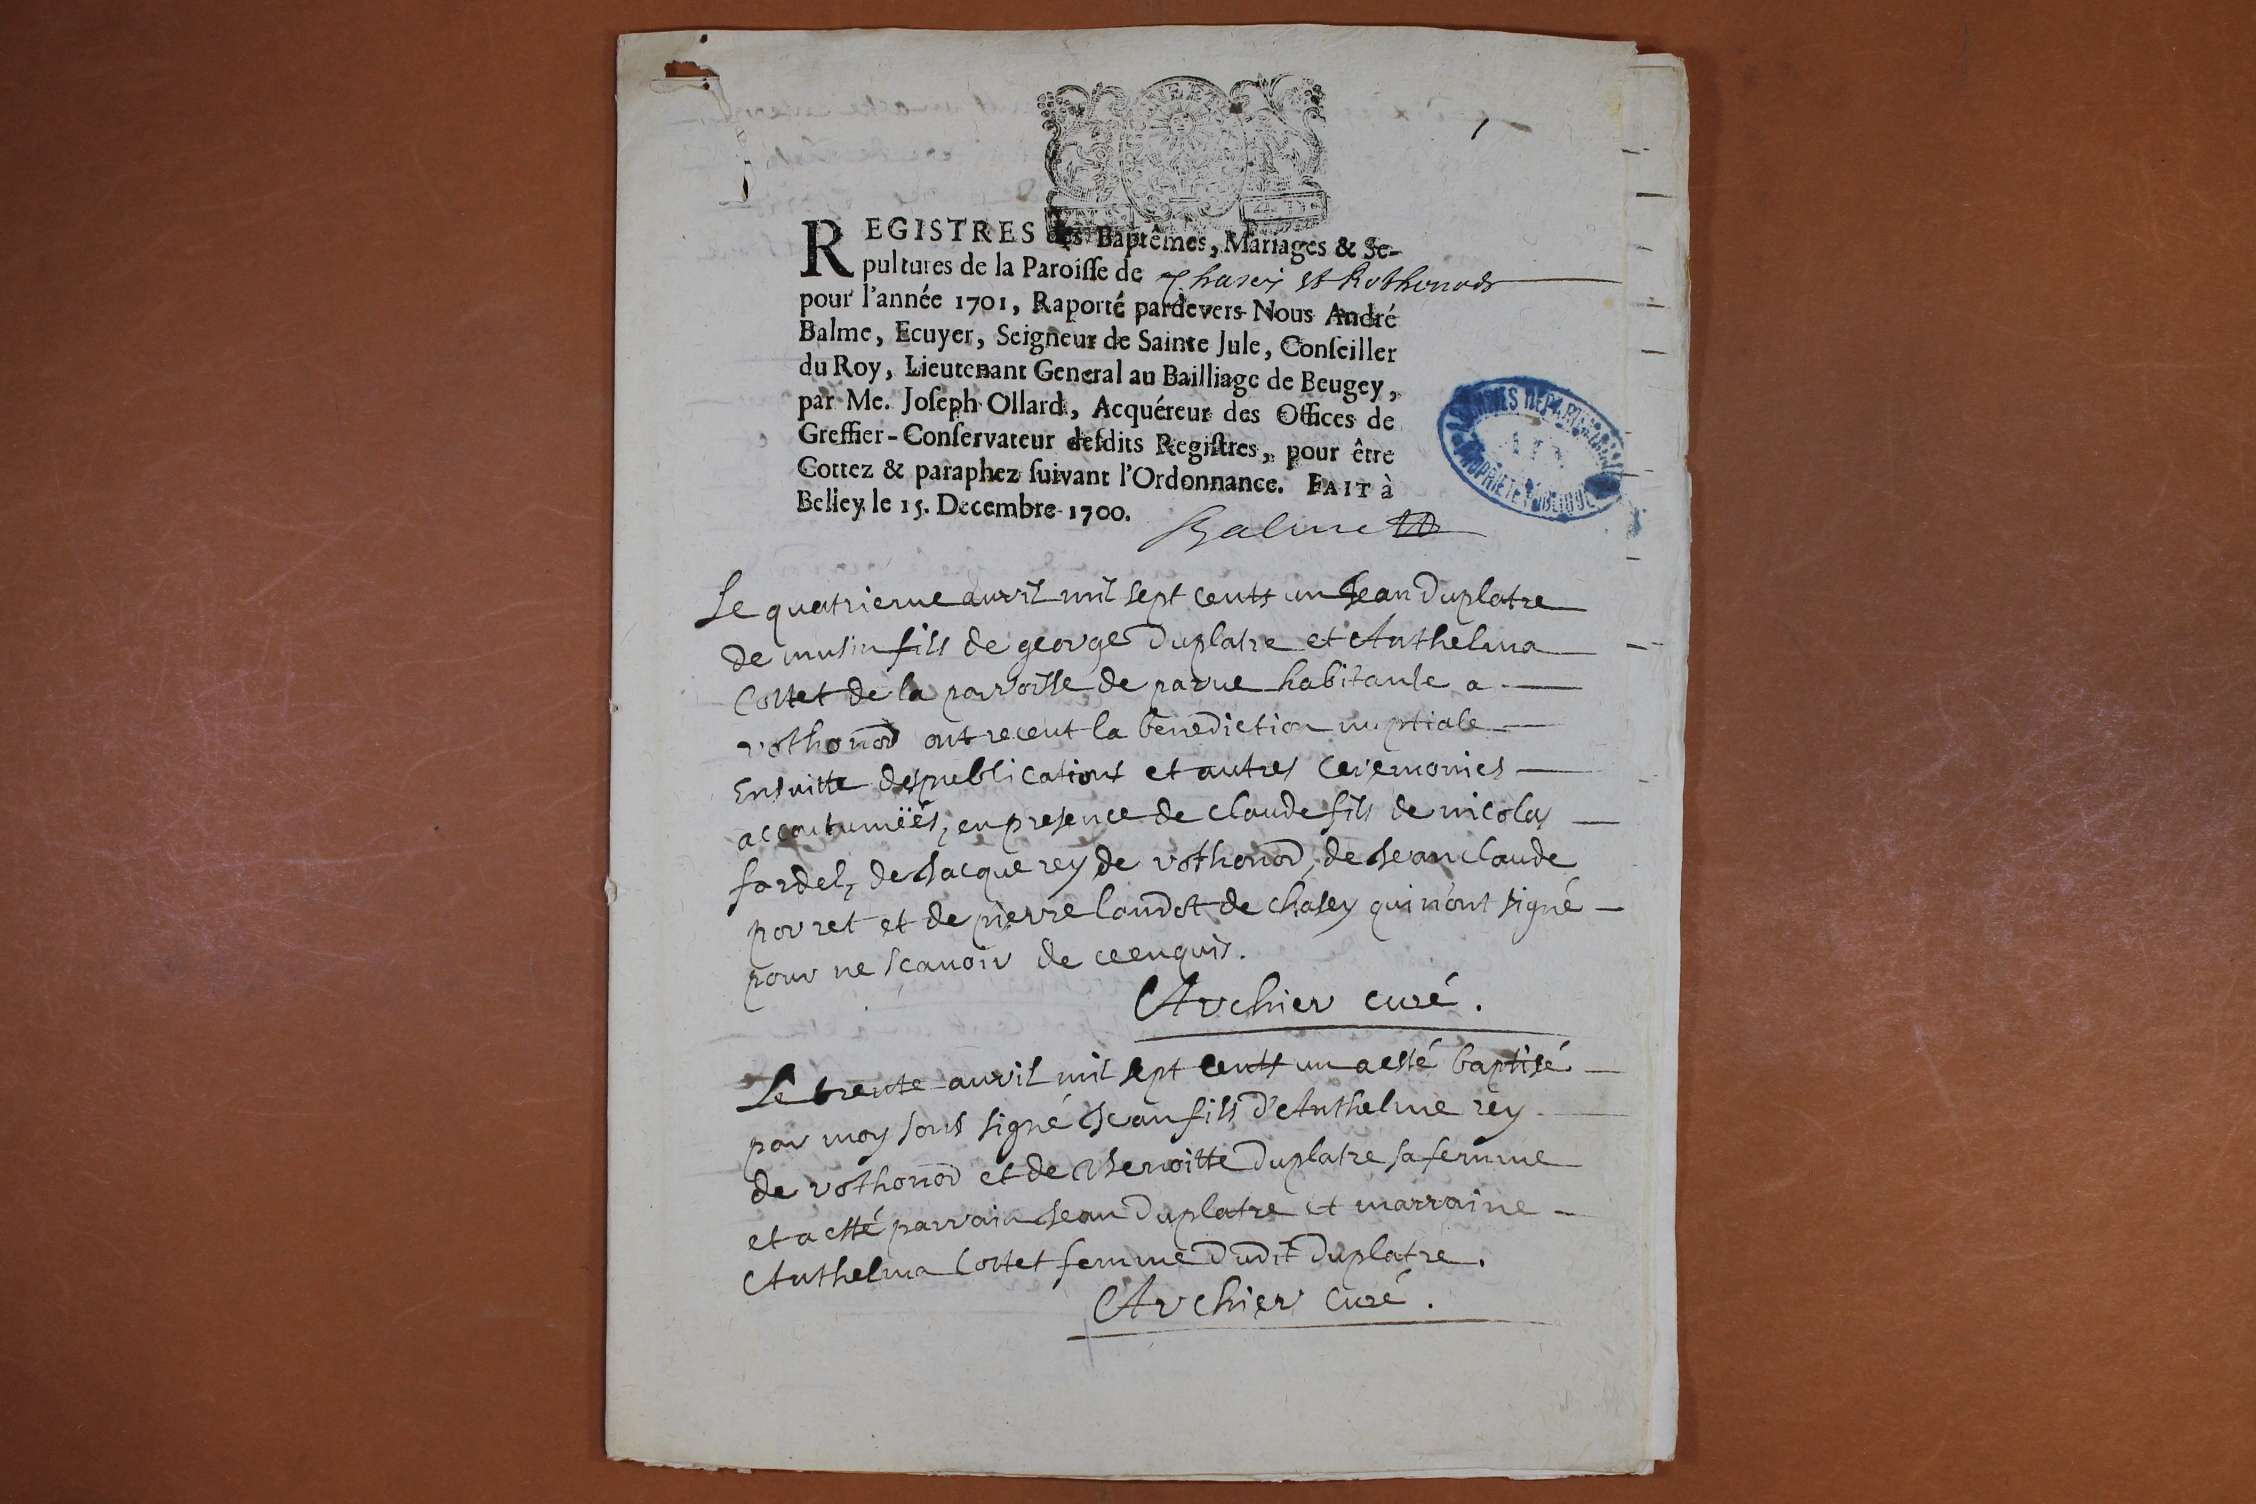 1
REGISTRES des Baptêmes, Mariages & Se-
pultures de la Paroisse de Chasey et Rothonods
pour l'année 1701, Raporté pardevers Nous André
Balme, Ecuyer, Seigneur de Sainte Jule, Conseiller
du Roy, Lieutenant General au Bailliage de Beugey,
par Me. Joseph Ollard, Acquéreur des Offices de
Greffier-Conservateur desdits Registres, pour être
Cottez & paraphez suivant l'Ordonnance. FAIT à
Belley le 15. Decembre 1700.
Balme
ARCHIVES DEPARTEMENTALES
AIN
PROPRIETE PUBLIQUE
Le quatrieme auvril mil sept cents un Jean Duplatre
de musin fils de george Duplatre et Anthelma
Cottet de la parroisse de parve habitante a
rothonod ont receut la benediction nuptiale
Ensuitte des publications et autres ceremonies
accoutumëës, en presence de claude fils de nicolas
fardel, de Jacque rey de rothonod, de Jean claude
porret et de pierre laudot de chasey qui n'ont signé
pour ne scavoir de ce enquis.
Archier curé.
Le trente auvril mil sept cents un a esté baptisé
par moy sous signé Jean fils d'Anthelme rey
de rothonod et de Benoitte Duplatre sa femme
et a esté parrain Jean Duplatre et marraine
Anthelma Cottet femme dudit Duplatre.
Archier Curé.